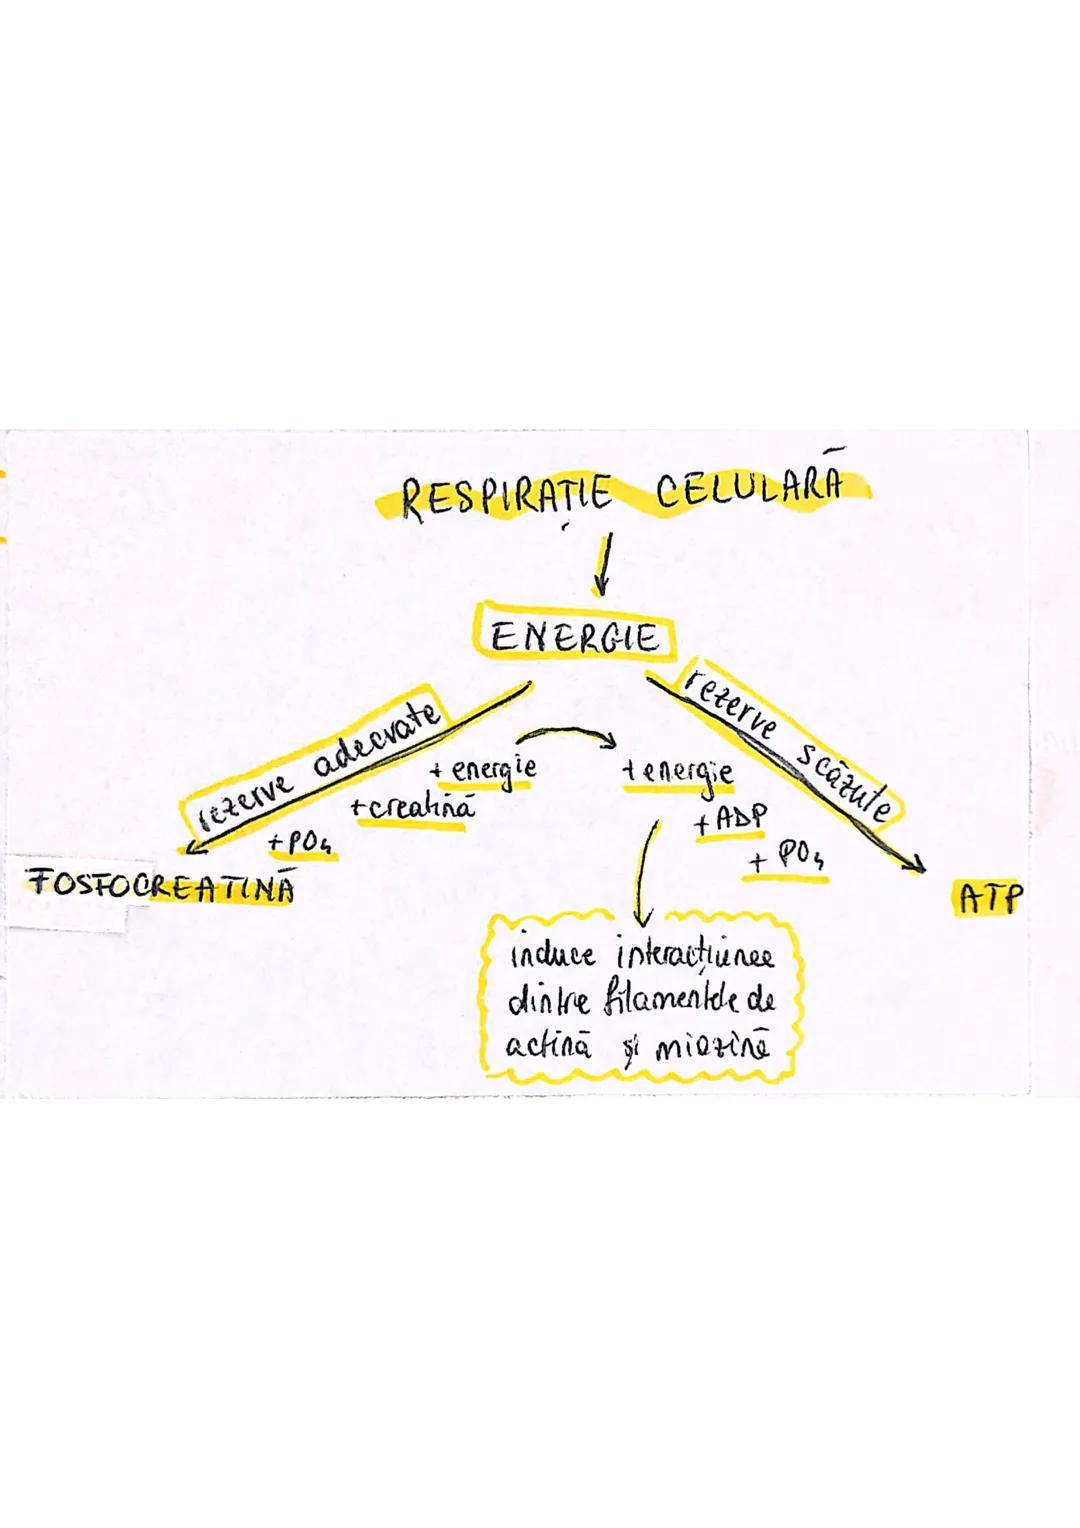 RESPIRAȚIE CELULARĂ
ENERGIE
rezerve adecvate
rezerve scăzute
+ energie
+ creatină
+ PO4
+ energie
+ ADP
+ PO4
FOSFOCREATINĂ
ATP
induce interacțiunea
dintre filamentele de
actină și miozină